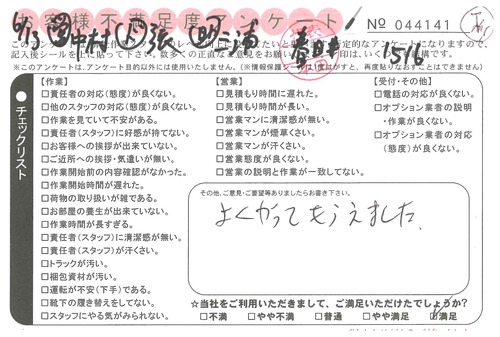 お客様不満足度アンケート
No 044141
6/3 中村 張 三浦
1516
記入後シールを上に貼って下さい。
※このアンケートは、アンケート目的以外には使用いたしません。
チェックリスト
【作業】
□責任者の対応(態度)が良くない。
□他のスタッフの対応(態度)が良くない。
□作業を見ていて不安がある。
□責任者(スタッフ)に好感が持てない。
□お客様への挨拶が出来ていない。
□ご近所への挨拶・気遣いが無い。
□作業開始前の内容確認がなかった。
□作業開始時間が遅れた。
□荷物の取り扱いが雑である。
□お部屋の養生が出来ていない。
□作業時間が長すぎる。
□責任者(スタッフ)に清潔感が無い。
□責任者(スタッフ)が汗くさい。
□トラックが汚い。
□梱包資材が汚い。
□運転が不安(下手)である。
□靴下の履き替えをしてない。
□スタッフにやる気がみられない。
【営業】
□見積もり時間に遅れた。
□見積もり時間が長い。
□営業マンに清潔感が無い。
□営業マンが煙草くさい。
□営業マンが汗くさい。
□営業態度が良くない。
□営業の説明と作業が一致してない。
【受付・その他】
□電話の対応が良くない。
□オプション業者の説明
・作業が良くない。
□オプション業者の対応
(態度)が良くない。
その他、ご意見・ご要望等ありましたらお書き下さい。
よくやってもらえました。
☆当社をご利用いただきまして、ご満足いただけたでしょうか?
□不満 □やや不満 □普通 □やや満足 □満足